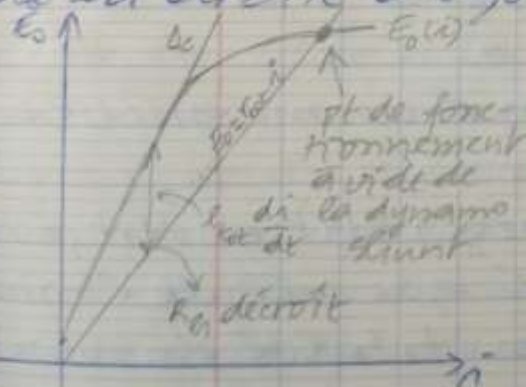 E₀
Δc
E₀(i)
E₀ = r_tot · i
pt de fonc-
tionnement
à vide de
la dynamo
shunt
l_tot di/dt
R_h décroît